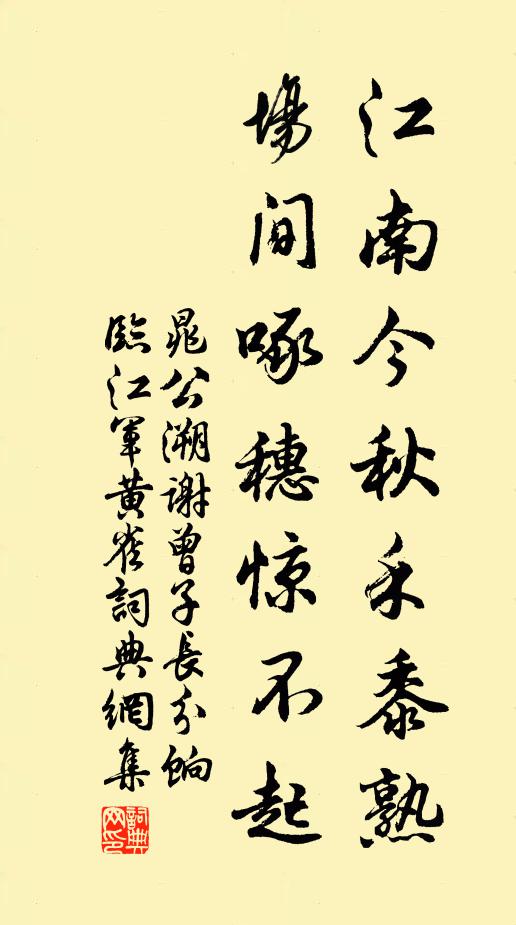 江南今秋禾黍熟
場間啄穗惊不起
晁公溯謝曾子長分餉
臨江軍黄雀詞典網集
詞典網印